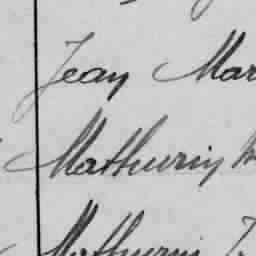 Jean Mar
Mathurin M
Mathurin J